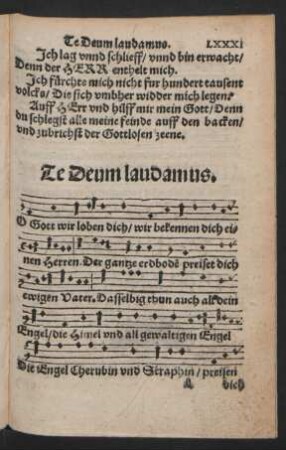 Te Deum laudamus. LXXXI
Ich lag vnnd schlieff/ vnnd bin erwacht/
Denn der HERR enthelt mich.
Ich fürchte mich nicht für hundert tausent
volcks/ Die sich vmbher widder mich legen.
Auff HErr vnd hilff mir mein Gott/ Denn
du schlegst alle meine feinde auff den backen/
vnd zubrichst der Gottlosen zeene.
Te Deum laudamus.
O Gott wir loben dich/ wir bekennen dich ei-
nen Herren. Der gantze erdbodē preiset dich
ewigen Vater. Dasselbig thun auch all dein
Engel/ die Himel vnd all gewaltigen Engel
Die Engel Cherubin vnd Seraphin/ preisen
dich